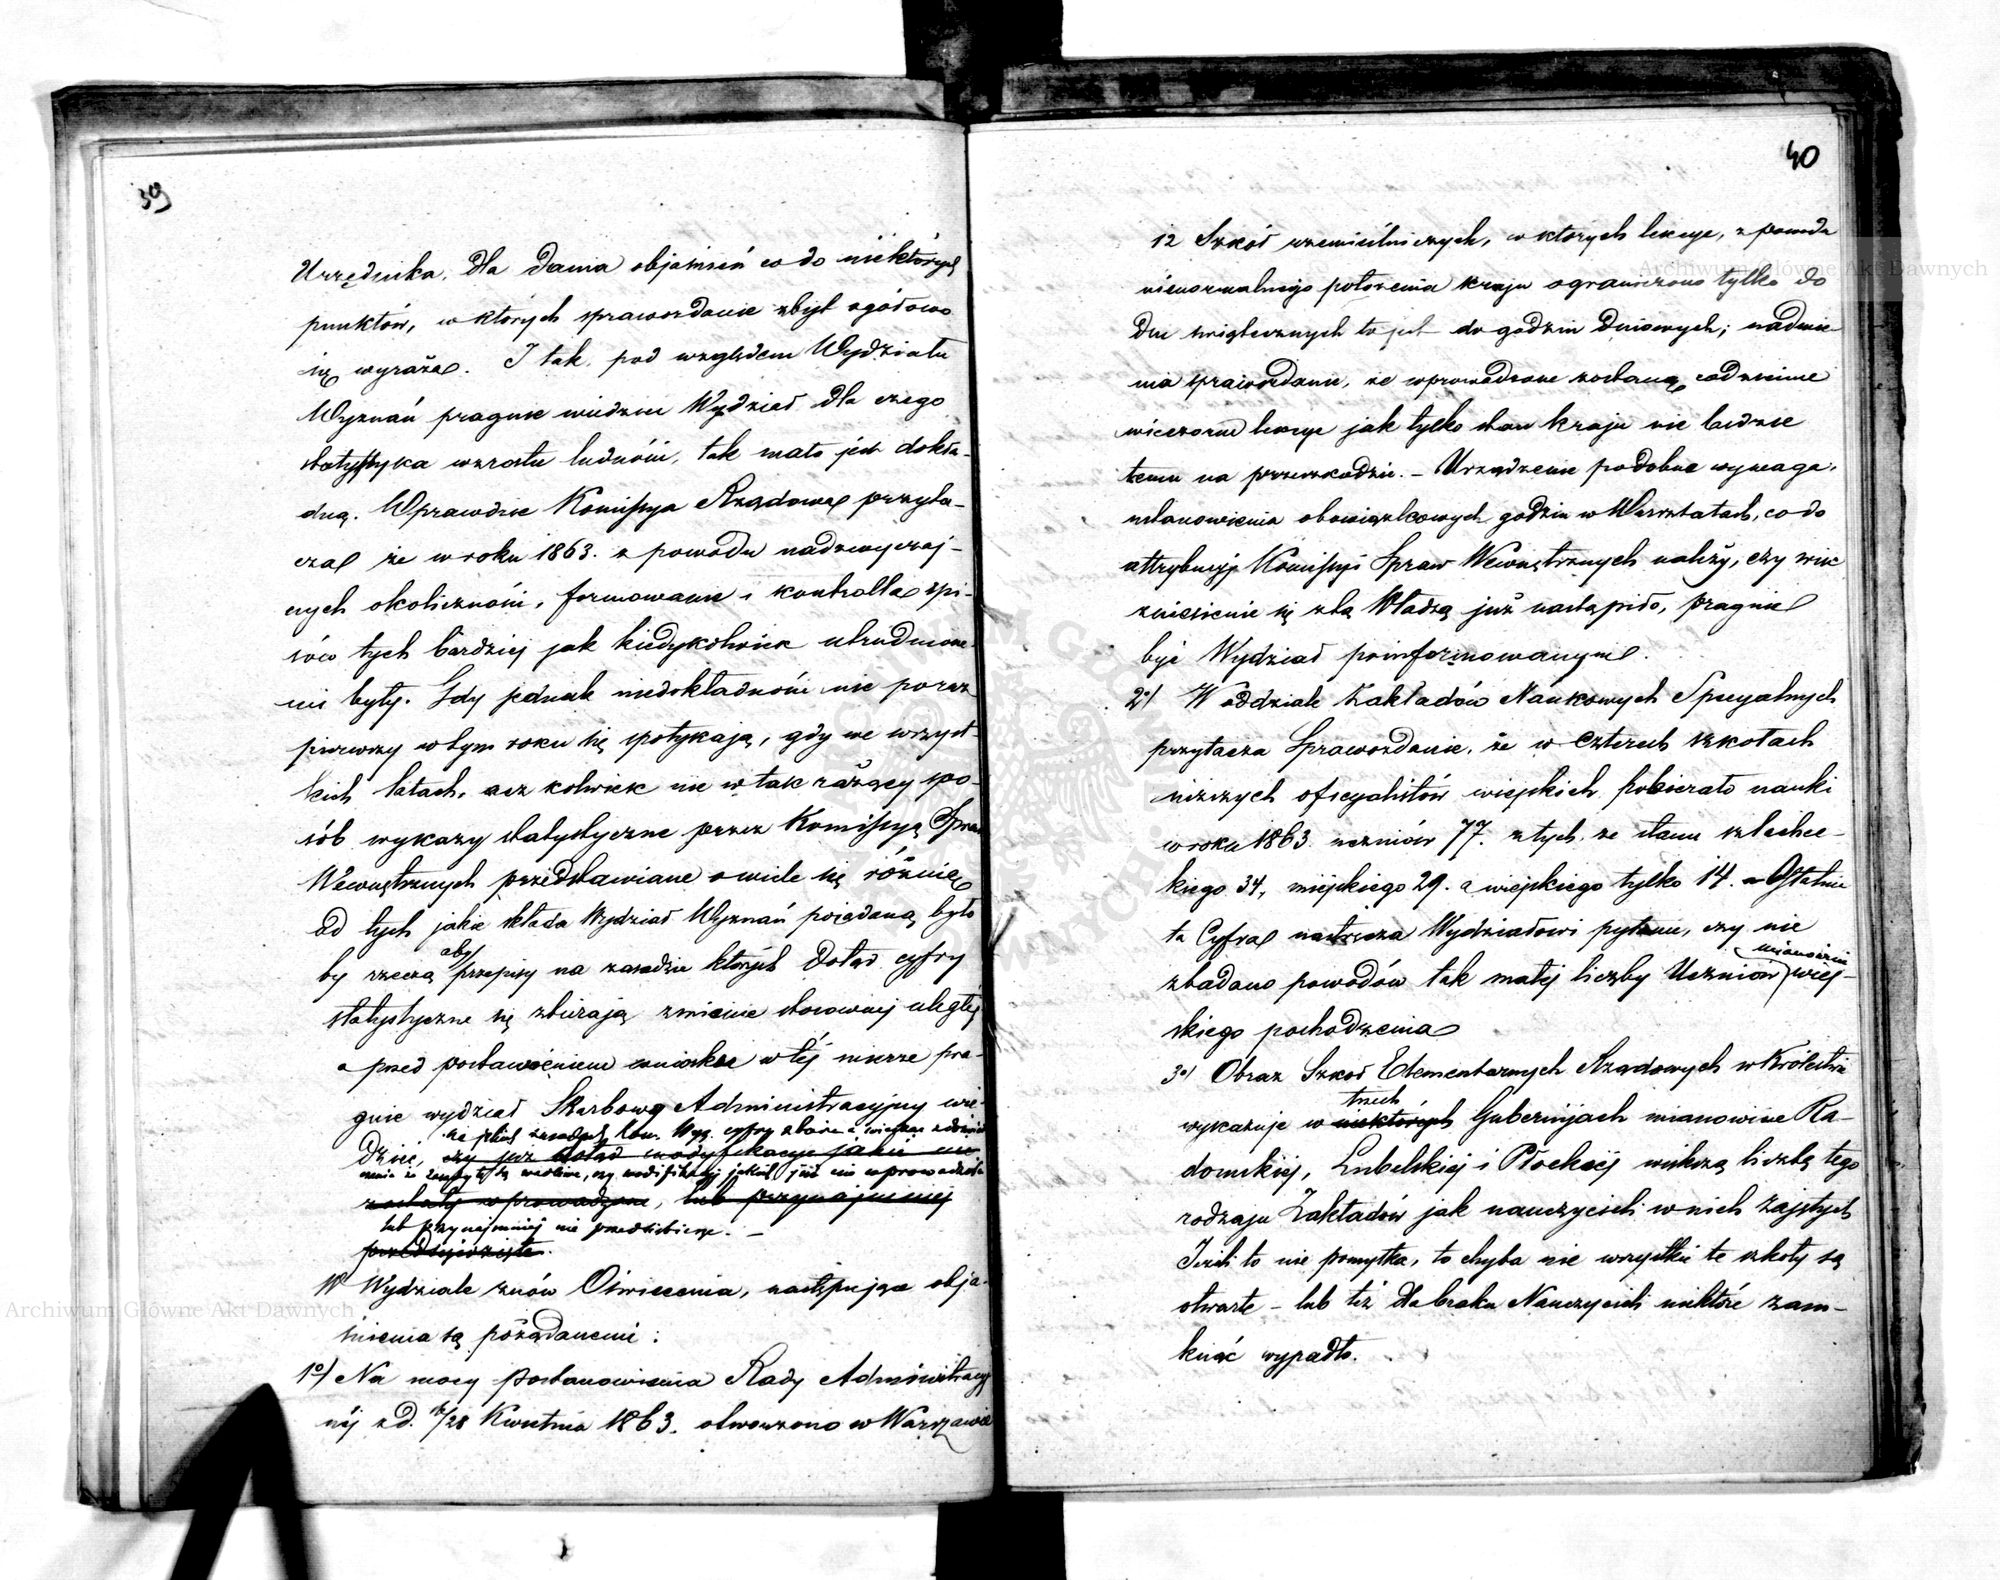 39
Urzędnika, dla dania objaśnień co do niektórych
punktów, w których sprawozdanie zbyt ogółowo
się wyraża. I tak, pod względem Wydziału
Wyznań pragnie wiedzieć Wydział dla czego
statystyka wzrostu ludności, tak mało jest dokła-
dną. Wprawdzie Komissya Rządowa przyta-
cza że w roku 1863. z powodu nadzwyczaj-
nych okoliczności, formowanie i kontrolla spi-
sów tych bardziej jak kiedykolwiek utrudnione-
mi były. Gdy jednak niedokładności nie poraz
pierwszy w tym roku się spotykają, gdy we wszyst-
kich latach, acz kolwiek nie w tak rażący spo-
sób wykazy statystyczne przez Komissyą Spraw
Wewnętrznych przedstawiane o wiele się różnią
od tych jakie składa Wydział Wyznań pożądaną było
by rzeczą aby przepisy na zasadzie których dotąd cyfry
statystyczne się zbierają zmianie stosownej uległy
a przed postawieniem wniosku w téj mierze pra-
gnie wydział Skarbowo Administracyjny wie-
dzieć, czy już dotąd modyfikacye jakie nie
na jakiej zasadzie Kom. Wyz. cyfry zbiera i
czy modifikacyj jakich już nie wprowadziła
zostały wprowadzone, lub przynajmniej
lub przynajmniej nie przedsiębierze. –
przedsięwzięte.
W Wydziale znów Oświecenia, następujące obja-
śnienia są pożądanemi:
1o) Na mocy postanowienia Rady Administracyj
néj z d. 16/28 Kwietnia 1863. otworzono w Warszawie
40
12 Szkół rzemieślniczych, w których lekcye, z powodu
nienormalnego położenia kraju ograniczono tylko do
dni świątecznych to jest do godzin dniowych; nadmie-
nia sprawozdanie, że wprowadzone zostaną codzienne
wieczorne lekcye jak tylko stan kraju nie będzie
temu na przeszkodzie. – Urządzenie podobne wymaga
ustanowienia obowiązkowych godzin w Warsztatach, co do
attrybucyj Komissyi Spraw Wewnętrznych należy, czy więc
zniesienie się z tą Władzą już nastąpiło, pragnie
być Wydział poinformowanym.
2o) W oddziale Zakładów Naukowych Specyalnych
przytacza Sprawozdanie, że w czterech szkołach
niższych oficyalistów wiejskich pobierało nauki
w roku 1863 uczniów 77. z tych ze stanu szlachec-
kiego 34, miejskiego 29. a wiejskiego tylko 14. Ostatnia
ta Cyfra nastręcza Wydziałowi pytanie, czy nie
zbadano powodów tak małej liczby Uczniów mianowicie wiej-
skiego pochodzenia
3o) Obraz Szkół Elementarnych Rządowych w Królestwie
wykazuje w niektórych trzech Guberniach mianowicie Ra-
domskiej, Lubelskiej i Płockiej większą liczbę tego
rodzaju Zakładów jak nauczycieli w nich zajętych
Jeżeli to nie pomyłka, to chyba nie wszystkie te szkoły są
otwarte – lub też dla braku Nauczycieli niektóre zam-
knąć wypadło.
Archiwum Główne Akt Dawnych
Archiwum Główne Akt Dawnych